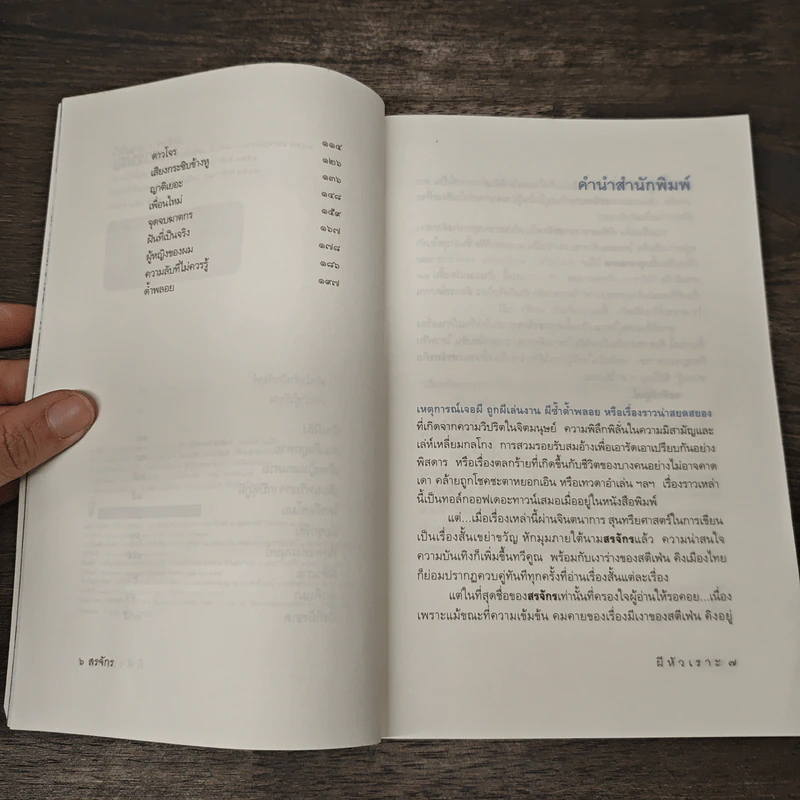 ดาวโจร ๑๑๔
เสียงกระซิบข้างหู ๑๒๖
ญาติเยอะ ๑๓๖
เพื่อนใหม่ ๑๔๘
จุดจบฆาตกร ๑๕๙
ฝันที่เป็นจริง ๑๖๗
ผู้หญิงของผม ๑๗๘
ความลับที่ไม่ควรรู้ ๑๘๖
ด้ำพลอย ๑๙๗
๖ สรจักร
คำนำสำนักพิมพ์
เหตุการณ์เจอผี ถูกผีเล่นงาน ผีซ้ำด้ำพลอย หรือเรื่องราวน่าสยดสยอง
ที่เกิดจากความวิปริตในจิตมนุษย์ ความพิลึกพิลั่นในความมิสามัญและ
เล่ห์เหลี่ยมกลโกง การสวมรอยรับสมอ้างเพื่อเอารัดเอาเปรียบกันอย่าง
พิสดาร หรือเรื่องตลกร้ายที่เกิดขึ้นกับชีวิตของบางคนอย่างไม่อาจคาด
เดา คล้ายถูกโชคชะตาหยอกเอิน หรือเทวดาอำเล่น ฯลฯ เรื่องราวเหล่า
นี้เป็นทอล์กออฟเดอะทาวน์เสมอเมื่ออยู่ในหนังสือพิมพ์
แต่...เมื่อเรื่องเหล่านี้ผ่านจินตนาการ สุนทรียศาสตร์ในการเขียน
เป็นเรื่องสั้นเขย่าขวัญ หักมุมภายใต้นามสรจักรแล้ว ความน่าสนใจ
ความบันเทิงก็เพิ่มขึ้นทวีคูณ พร้อมกับเงาร่างของสตีเฟ่น คิงเมืองไทย
ก็ย่อมปรากฏควบคู่ทันทีทุกครั้งที่อ่านเรื่องสั้นแต่ละเรื่อง
แต่ในที่สุดชื่อของสรจักรเท่านั้นที่ครองใจผู้อ่านให้รอคอย...เนื่อง
เพราะแม้ขณะที่ความเข้มข้น คมคายของเรื่องมีเงาของสตีเฟ่น คิงอยู่
ผีหัวเราะ ๗